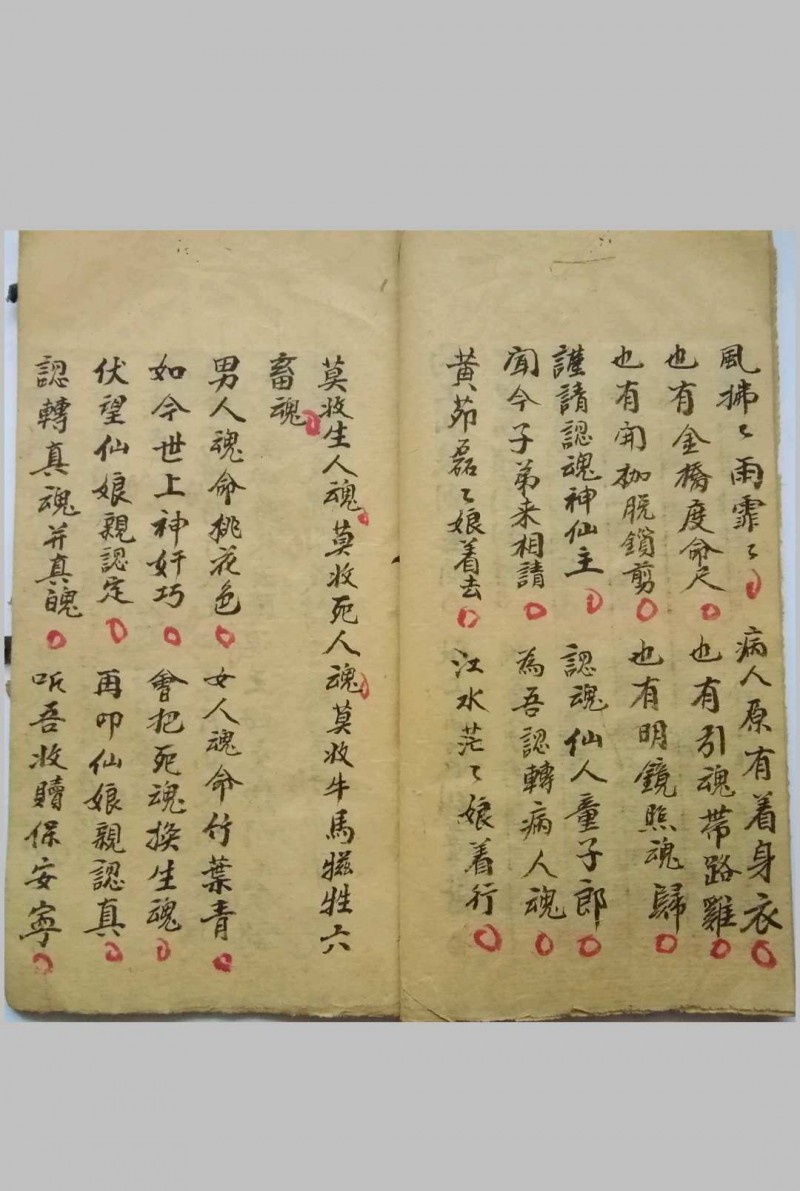 風拂〻雨霏〻 病人原有着身衣
也有金橋度命尺 也有引魂帶路雞
也有開枷脫鎖剪 也有明鏡照魂歸
謹請認魂神仙主 認魂仙人童子郎
聞今子弟来相請 為吾認轉病人魂
黃茆磊〻娘着去 江水茫〻娘着行
莫收生人魂莫收死人魂莫收牛馬牲六
畜魂
男人魂命桃花色 女人魂命竹葉青
如今世上神奸巧 會把死魂換生魂
伏望仙娘親認定 再叩仙娘親認真
認轉真魂并真魄 吾收贖保安寧